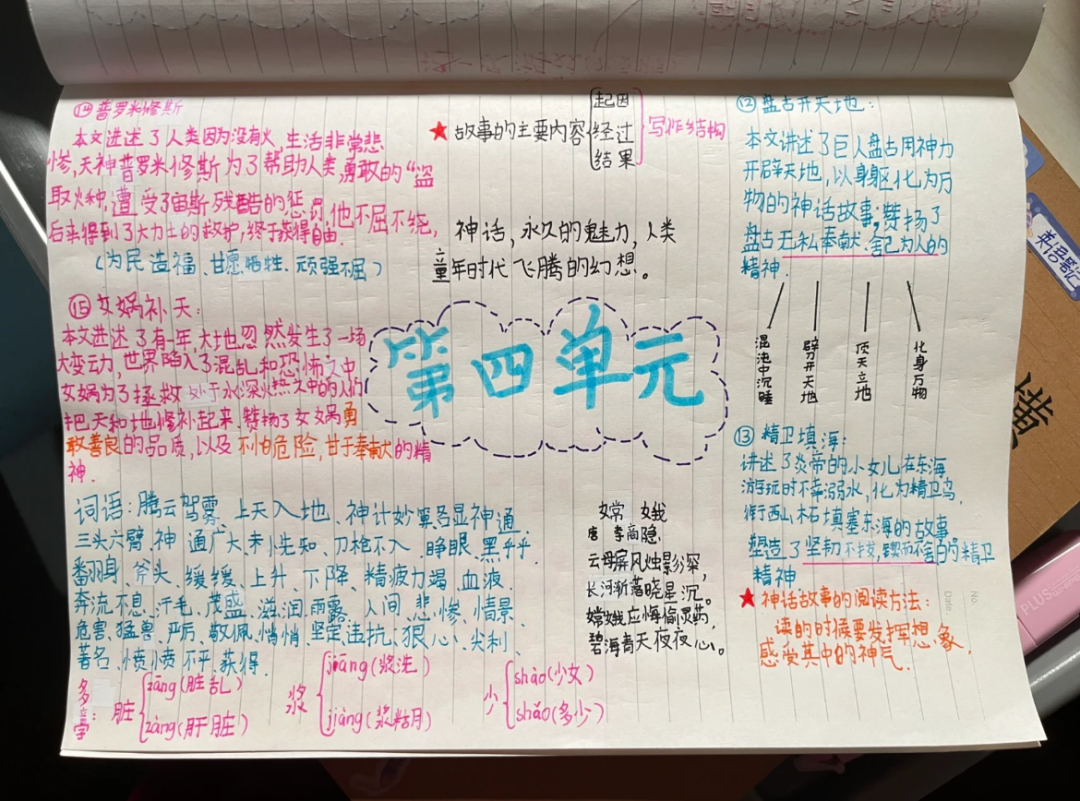 ⑭普罗米修斯
本文进述了人类因为没有火,生活非常悲
惨,天神普罗米修斯为了帮助人类,勇敢的“盗
取火种,遭受了宙斯残酷的惩罚,他不屈不绕,
后来得到了大力士的救护,终于获得自由.
(为民造福、甘愿牺牲、顽强不屈)
⑮女娲补天:
本文进述了有一年,大地忽然发生了一场
大变动,世界陷入了混乱和恐怖之中
女娲为了拯救处于水深火热之中的人们
把天和地修补起来,赞扬了女娲勇
敢善良的品质,以及不怕危险,甘于奉献的精
神.
★故事的主要内容
起因
经过
结果
写作结构
神话,永久的魅力,人类
童年时代飞腾的幻想。
第四单元
⑫盘古开天地:
本文讲述了巨人盘古用神力
开辟天地,以身躯化为万
物的神话故事;赞扬了
盘古无私奉献、舍己为人的
精神.
混沌中沉睡
劈开天地
顶天立地
化身万物
⑬精卫填海:
讲述了炎帝的小女儿在东海
游玩时不幸溺水,化为精卫鸟,
衔西山木石填塞东海的故事
塑造了坚韧不拔,锲而不舍的精卫
精神
★神话故事的阅读方法:
读的时候要发挥想象,
感受其中的神气.
词语:腾云驾雾、上天入地、神计妙算各显神通、
三头六臂、神通广大、未卜先知、刀枪不入、睁眼、黑乎乎
翻身、斧头、缓缓、上升、下降、精疲力竭、血液、
奔流不息、汗毛、茂盛、滋润雨露、人间、悲惨、情景、
危害、猛兽、严厉、敬佩、悄悄、坚定违抗、狠心、尖利、
著名、愤愤不平、获得.
嫦娥
唐 李商隐.
云母屏风烛影深,
长河渐落晓星沉。
嫦娥应悔偷灵药,
碧海青天夜夜心。
多音字:
脏
zāng(脏乱)
zàng(肝脏)
浆
jiāng(浆洗)
少
shào(少女)
shǎo(多少)
英语笔记
No.
Date
PLUS